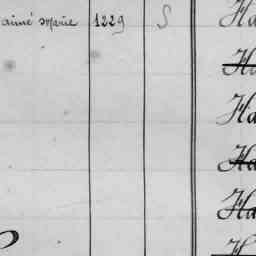 aimé Marie 1229 S Ha
Ha
Ha
Ha
Ha
H